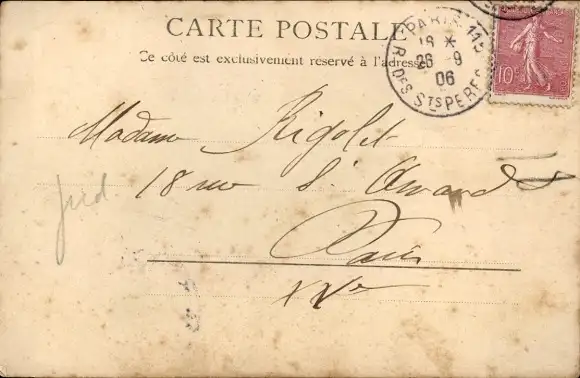 CARTE POSTALE
Ce côté est exclusivement réservé à l'adresse
PARIS 115
18 *
26 - 9
06
R. DES STS PERES
10c
Madame Rigolet
18 rue St Amand
Paris
XVe